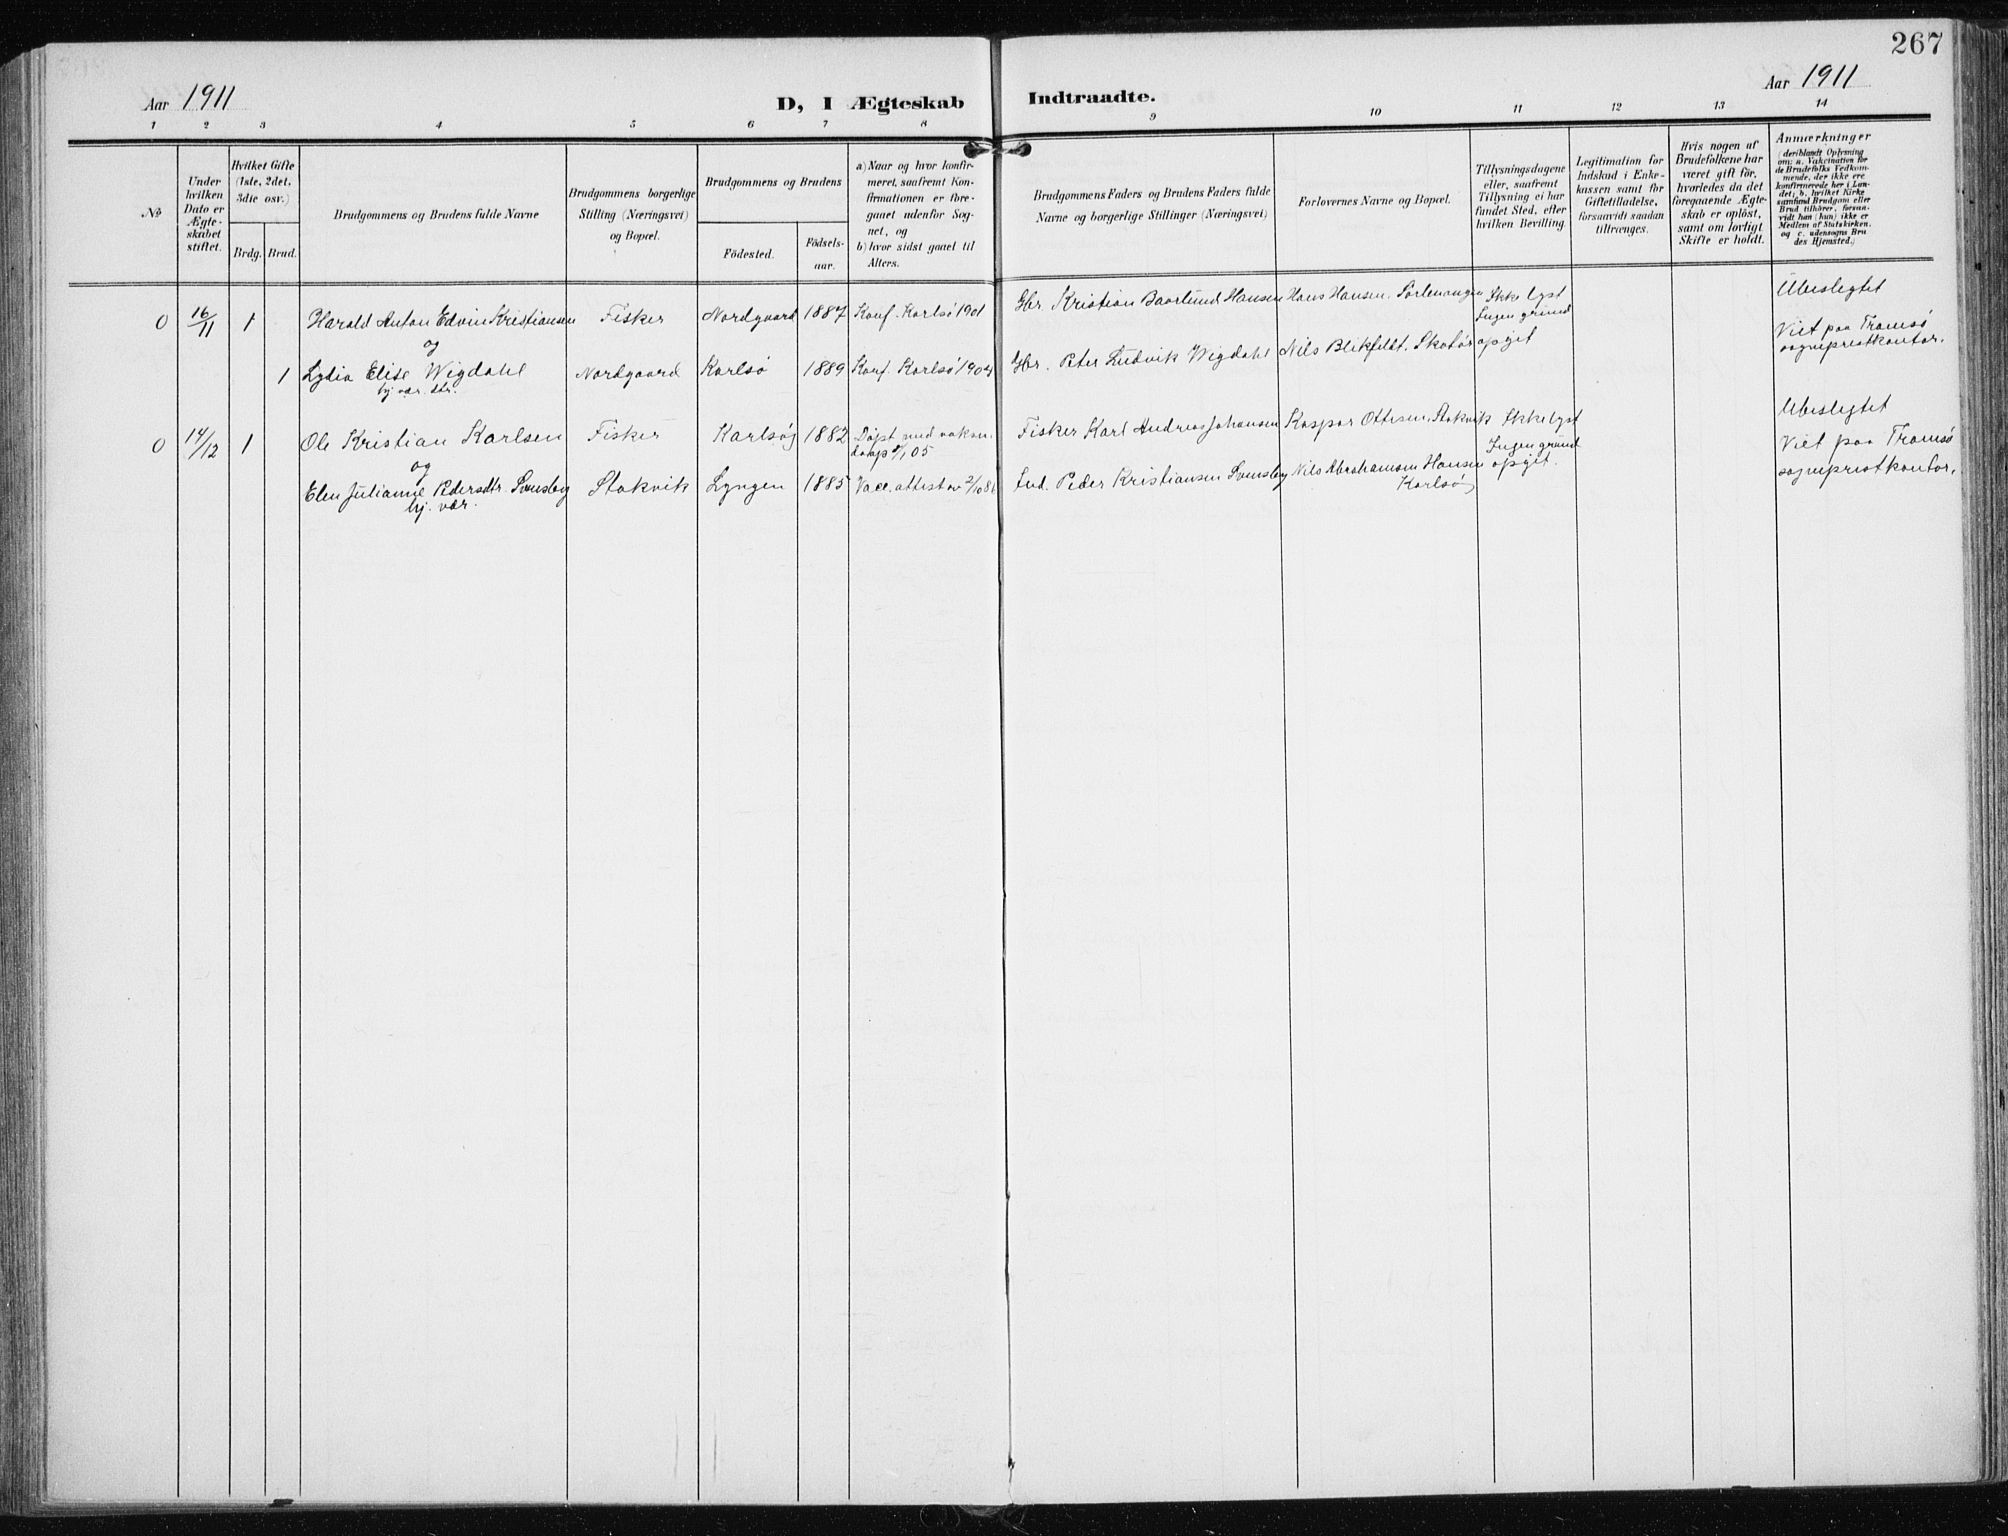 267
Aar 1911
D, I Ægteskab Indtraadte.
Aar 1911
1 2 3 4 5 6 7 8 9 10 11 12 13 14
No
Under
hvilken
Dato er
Ægte-
skabet
stiftet.
Hvilket Gifte
(1ste, 2det,
3die osv.)
Brdg. Brud.
Brudgommens og Brudens fulde Navne
Brudgommens borgerlige
Stilling (Næringsvei)
og Bopæl.
Brudgommens og Brudens
Födested.
Födsels-
aar.
a) Naar og hvor konfir-
meret, saafremt Kon-
firmationen er fore-
gaaet udenfor Sog-
net, og
b) hvor sidst gaaet til
Alters.
Brudgommens Faders og Brudens Faders fulde
Navne og borgerlige Stillinger (Næringsvei)
Forlovernes Navne og Bopæl.
Tillysningsdagene
eller, saafremt
Tillysning ei har
fundet Sted, efter
hvilken Bevilling.
Legitimation for
Indskud i Enke-
kassen samt for
Giftetilladelse,
forsaavidt saadan
tiltrænges.
Hvis nogen af
Brudefolkene har
været gift för,
hvorledes da det
foregaaende Ægte-
skab er oplöst,
samt om lovligt
Skifte er holdt.
Anmærkninger
(deriblandt Oplysning
om: a. Vakcination for
de Brudefolks Vedkom-
mende, der ikke ere
konfirmerede her i Lan-
det; b. hvilket Kirke
samfund Brudgom eller
Brud tilhörer, forsaa-
vidt han (hun) ikke er
Medlem af Statskirken.
og c. udensogns Bru
des Hjemsted.)
0 16/11 1 Harald Anton Edvin Kristiansen Fisker Nordgaard 1887 Konf. Karlsö 1901 Gbr. Kristian Baarlund Hansen Hans Hansen. Sörlenangen Ikke lyst Ubeslegtet
og Ingen grund Viet paa Tromsö
1 Lydia Elise Wigdahl Nordgaard Karlsö 1889 Konf. Karlsö 1904 Gbr. Peter Ludvik Wigdahl Nils Blikfeldt. Skatör opgit sogneprestkontor.
hj. vær. dtr.
0 14/12 1 Ole Kristian Karlsen Fisker Karlsöy 1882 Döpt med voksen Fisker Karl Andreas Johansen Kaspar Ottesen, Stakvik Ikke lyst Ubeslegtet
og daap 05 Ingen grund Viet paa Tromsö
Elen Julianne Pedersdtr. Svensby Stakvik Lyngen 1885 Vacc. attest av 2/10 86 Ind. Peder Kristiansen Svensby Nils Abrahamsen Hansen opgit. sogneprestkontor.
hj. vær. Karlsö